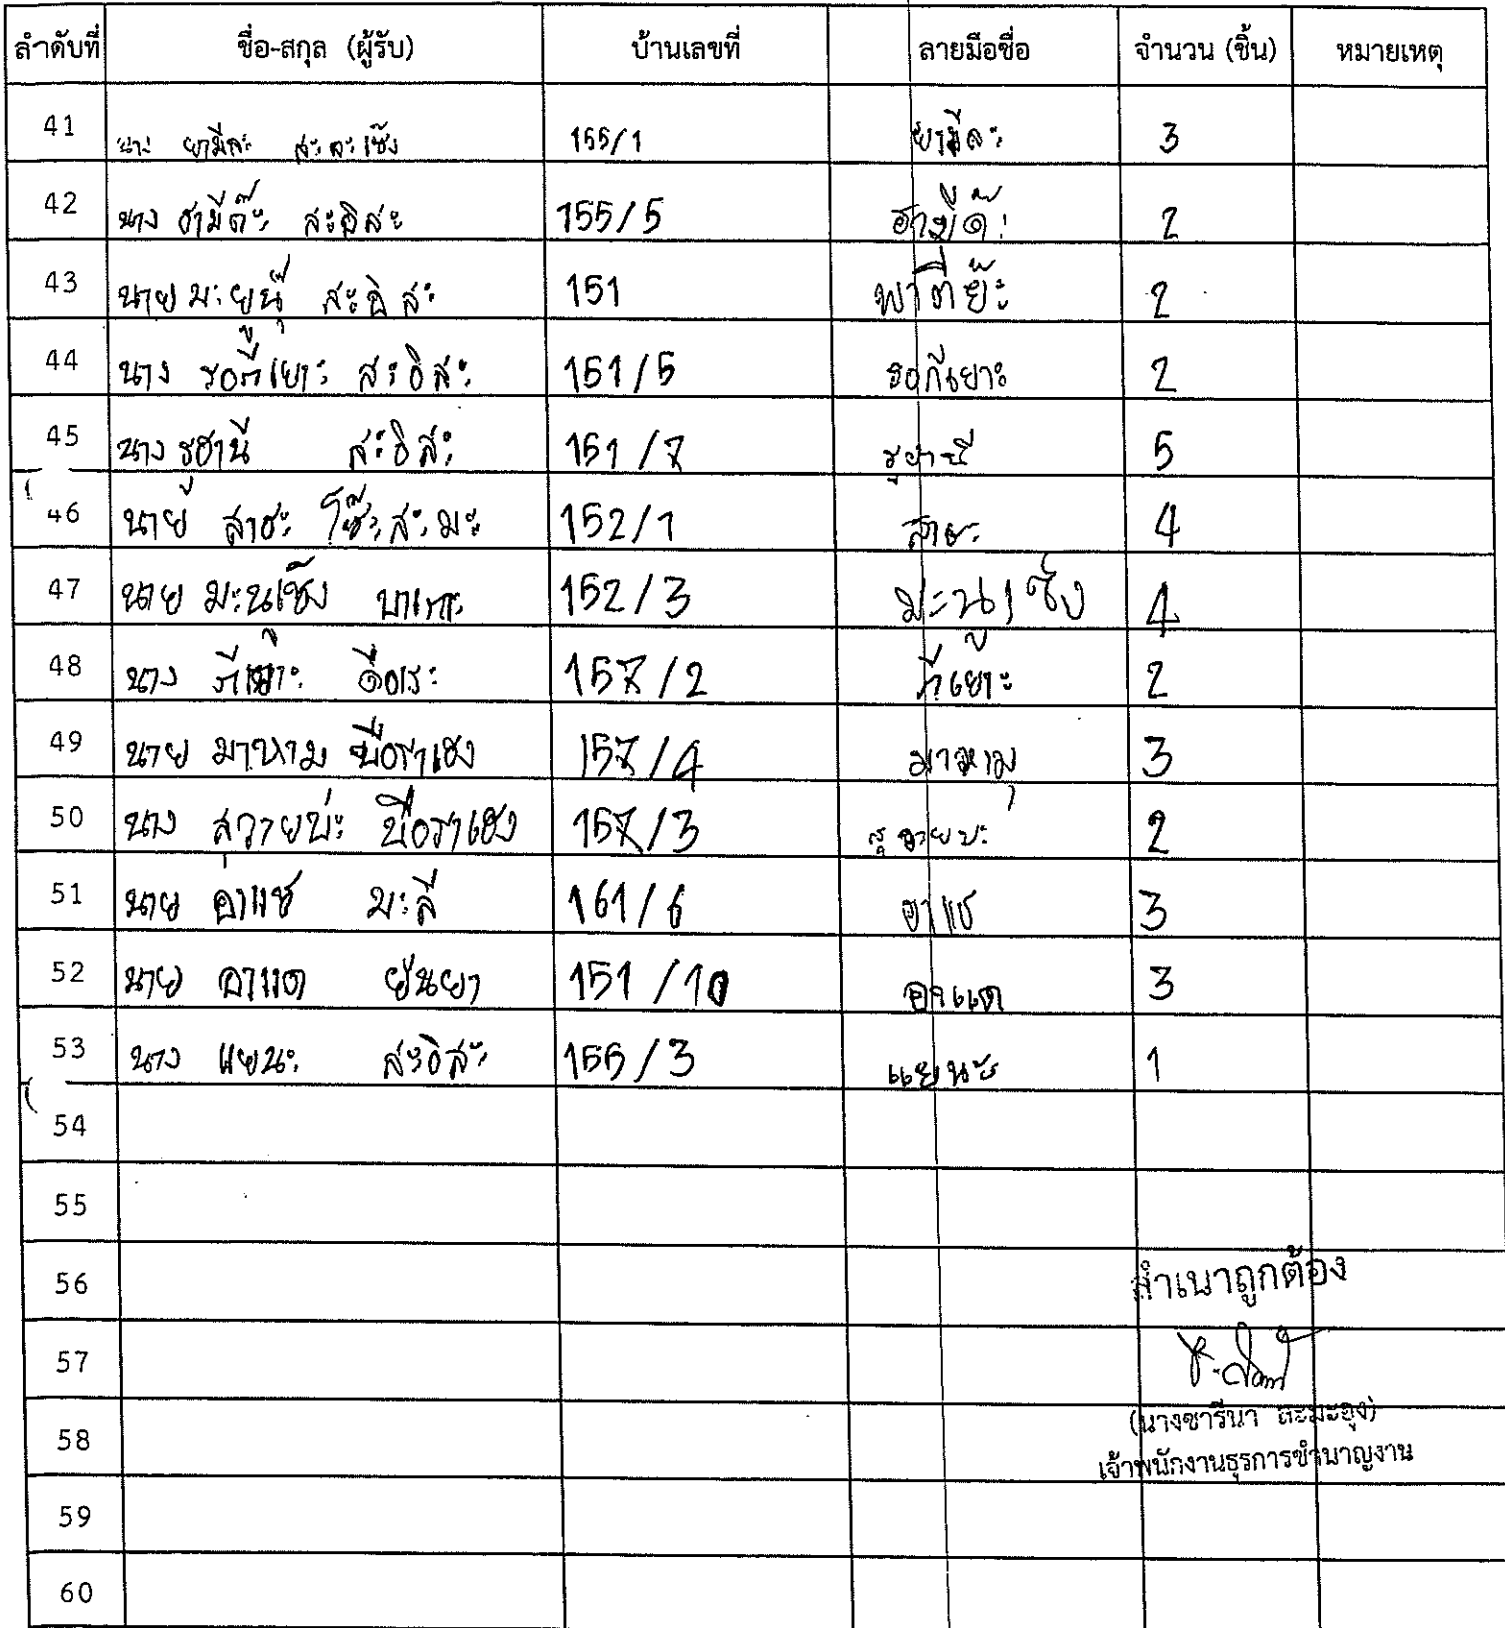 ลำดับที่ ชื่อ-สกุล (ผู้รับ) บ้านเลขที่ ลายมือชื่อ จำนวน (ชิ้น) หมายเหตุ
41 นาง ยามีละ สะละเซ็ง 155/1 ยามีละ 3
42 นาง ฮามีด๊ะ สะอิสะ 155/5 ฮามีด๊ะ 2
43 นาย มะยูนุ๊ สะอิสะ 151 พาตีย๊ะ 2
44 นาง รอกีเยาะ สะอิสะ 151/5 รอกีเยาะ 2
45 นาง รูฮานี สะอิสะ 151/7 รูฮานี 5
46 นาย สาฮะ โซ๊ะสะมะ 152/1 สาฮะ 4
47 นาย มะนเซ็ง 152/3 มะนเซ็ง 4
48 นาง ตีเยาะ ดือเระ 157/2 ตีเยาะ 2
49 นาย มาหาม บือราเฮง 157/4 มาหาม 3
50 นาง สุวายบะ บือราเฮง 157/3 สุวายบะ 2
51 นาย อาแซ มะลี 161/6 อาแซ 3
52 นาย อาแด ยูนยา 151/10 อาแด 3
53 นาง แยนะ สะอิสะ 155/3 แยนะ 1
54
55
56
สำเนาถูกต้อง
57
(นางซารีนา สะมะอุง)
58
เจ้าพนักงานธุรการชำนาญงาน
59
60